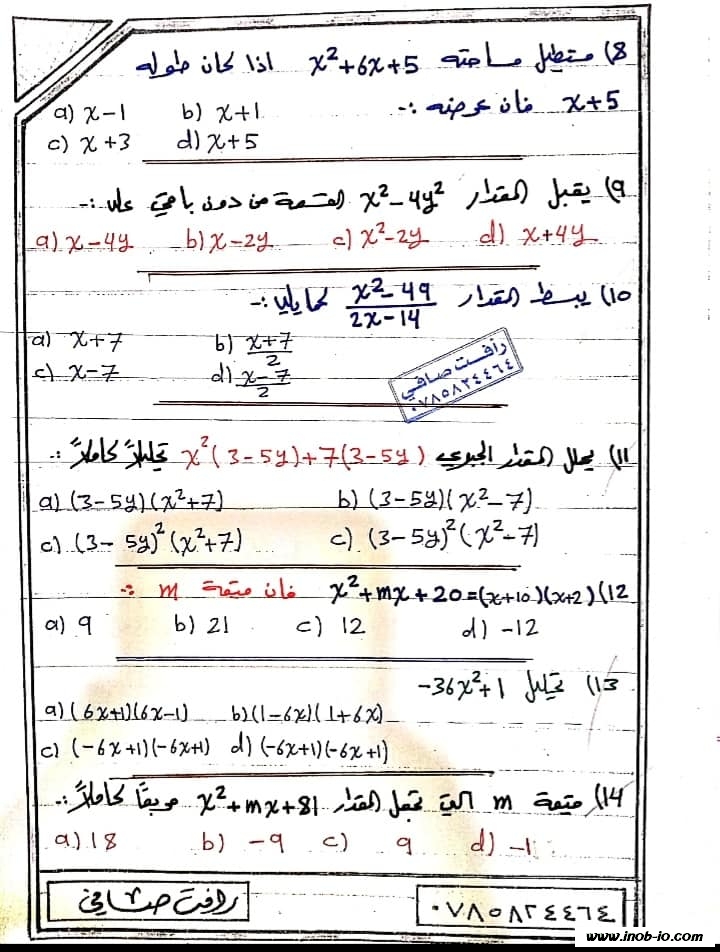 8) مستطيل مساحته x²+6x+5 اذا كان طوله
x+5 فان عرضه :-
a) x-1 b) x+1
c) x+3 d) x+5
9) يقبل المقدار x²-4y² القسمة من دون باقي على :-
a) x-4y b) x-2y c) x²-2y d) x+4y
10) يبسط المقدار (x²-49)/(2x-14) كما يلي :-
a) x+7 b) (x+7)/2
c) x-7 d) (x-7)/2
رأفت صافي
٠٧٨٥٨٢٤٤٦٤
11) يحلل المقدار الجبري x²(3-5y)+7(3-5y) تحليلاً كاملاً :-
a) (3-5y)(x²+7) b) (3-5y)(x²-7)
c) (3-5y)²(x²+7) c) (3-5y)²(x²-7)
12) x²+mx+20=(x+10)(x+2) فان قيمة m :-
a) 9 b) 21 c) 12 d) -12
13) تحليل -36x²+1
a) (6x+1)(6x-1) b) (1-6x)(1+6x)
c) (-6x+1)(-6x+1) d) (-6x+1)(-6x+1)
14) قيمة m التي تجعل المقدار x²+mx+81 مربعاً كاملاً :-
a) 18 b) -9 c) 9 d) -1
رافت صافي
٠٧٨٥٨٢٤٤٦٤
www.inob-io.com